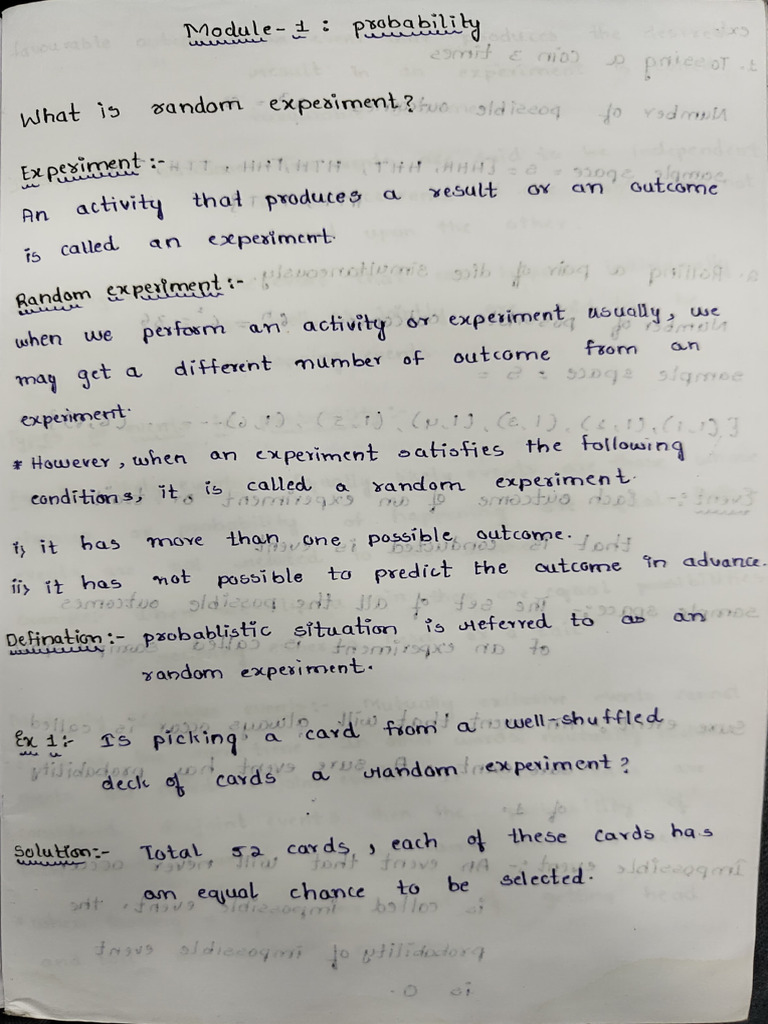 Module-1 : probability
What is random experiment?
Experiment :-
An activity that produces a result or an outcome
is called an experiment.
Random experiment :-
when we perform an activity or experiment usually, we
may get a different number of outcome from an
experiment.
* However, when an experiment satisfies the following
conditions, it is called a random experiment.
i, it has more than one possible outcome.
ii, it has not possible to predict the outcome in advance.
Defination :- probablistic situation is referred to as an
random experiment.
Ex 1 :- Is picking a card from a well-shuffled
deck of cards a random experiment?
Solution :- Total 52 cards, each of these cards has
an equal chance to be selected.